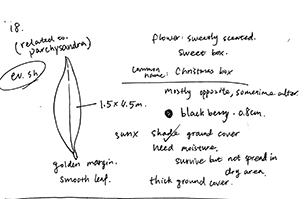 18.
(related to.
parchysandra)
ev. sh
1.5 x 4.5m.
golden margin.
smooth leaf.
flower: sweetly scented.
sweet box.
common name: Christmas box
mostly opposite, sometime alter.
black berry - 0.8cm.
sunx shade ground cover
need moisture.
survive but not spread in
dry area.
thick ground cover.